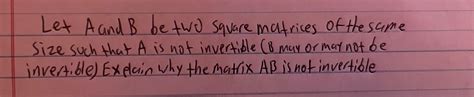 Let A and B be two square matrices of the same
size such that A is not invertible (B may or may not be
invertible) Explain why the matrix AB is not invertible